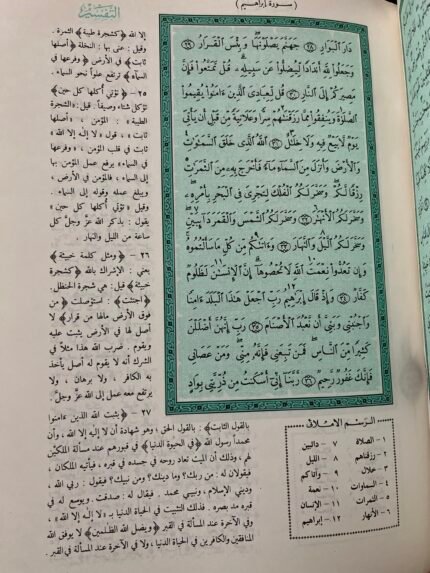 (سورة إبراهيم)
التفسير
دَارَ ٱلْبَوَارِ ٢٨ جَهَنَّمَ يَصْلَوْنَهَا وَبِئْسَ ٱلْقَرَارُ ٢٩
وَجَعَلُوا۟ لِلَّهِ أَندَادًا لِّيُضِلُّوا۟ عَن سَبِيلِهِۦ قُلْ تَمَتَّعُوا۟ فَإِنَّ
مَصِيرَكُمْ إِلَى ٱلنَّارِ ٣٠ قُل لِّعِبَادِىَ ٱلَّذِينَ ءَامَنُوا۟ يُقِيمُوا۟
ٱلصَّلَوٰةَ وَيُنفِقُوا۟ مِمَّا رَزَقْنَٰهُمْ سِرًّا وَعَلَانِيَةً مِّن قَبْلِ أَن يَأْتِىَ
يَوْمٌ لَّا بَيْعٌ فِيهِ وَلَا خِلَٰلٌ ٣١ ٱللَّهُ ٱلَّذِى خَلَقَ ٱلسَّمَٰوَٰتِ
وَٱلْأَرْضَ وَأَنزَلَ مِنَ ٱلسَّمَآءِ مَآءً فَأَخْرَجَ بِهِۦ مِنَ ٱلثَّمَرَٰتِ
رِزْقًا لَّكُمْ وَسَخَّرَ لَكُمُ ٱلْفُلْكَ لِتَجْرِىَ فِى ٱلْبَحْرِ بِأَمْرِهِۦ
وَسَخَّرَ لَكُمُ ٱلْأَنْهَٰرَ ٣٢ وَسَخَّرَ لَكُمُ ٱلشَّمْسَ وَٱلْقَمَرَ دَآئِبَيْنِ
وَسَخَّرَ لَكُمُ ٱلَّيْلَ وَٱلنَّهَارَ ٣٣ وَءَاتَىٰكُم مِّن كُلِّ مَا سَأَلْتُمُوهُ
وَإِن تَعُدُّوا۟ نِعْمَتَ ٱللَّهِ لَا تُحْصُوهَآ إِنَّ ٱلْإِنسَٰنَ لَظَلُومٌ
كَفَّارٌ ٣٤ وَإِذْ قَالَ إِبْرَٰهِيمُ رَبِّ ٱجْعَلْ هَٰذَا ٱلْبَلَدَ ءَامِنًا
وَٱجْنُبْنِى وَبَنِىَّ أَن نَّعْبُدَ ٱلْأَصْنَامَ ٣٥ رَبِّ إِنَّهُنَّ أَضْلَلْنَ
كَثِيرًا مِّنَ ٱلنَّاسِ فَمَن تَبِعَنِى فَإِنَّهُۥ مِنِّى وَمَنْ عَصَانِى
فَإِنَّكَ غَفُورٌ رَّحِيمٌ ٣٦ رَّبَّنَآ إِنِّىٓ أَسْكَنتُ مِن ذُرِّيَّتِى بِوَادٍ
إلا الله ﴿كشجرة طيبة﴾ الثمرة .
وقيل : عنى بها : النخلة ﴿أصلها
ثابت﴾ في الأرض ﴿وفرعها في
السماء﴾ ترتفع علواً نحو السماء .
٢٥ - ﴿تؤتي أكلها كل حين﴾
تؤكل شتاء وصيفاً . قيل : «الشجرة
الطيبة» : المؤمن ، «أصلها
ثابت» ، قول «لا إله إلا الله»
ثابت في قلب المؤمن ، «وفرعها
في السماء» يرفع عمل المؤمن بها
إلى السماء ، فالمؤمن في الأرض ،
ويبلغ عمله وقوله إلى السماء .
وقيل «تؤتي أكلها كل حين»
يقول : يذكر الله عزَّ وجلَّ كل
ساعة من الليل والنهار .
٢٦ - ﴿ومثل كلمة خبيثة﴾
يعني : الإشراك بالله ﴿كشجرة
خبيثة﴾ قيل : هي شجرة الحنظل.
﴿اجتثت﴾ : استؤصلت ﴿من
فوق الأرض مالها من قرار﴾ لا
أصل لها في الأرض يثبت عليه
ويقوم . ضرب الله هذا مثلاً في
الشرك أنه لا يقوم له أصل يأخذ
به الكافر ، ولا برهان ، ولا
يرتفع معه عمل إلى الله عزَّ وجلَّ.
٢٧ ﴿يثبت الله الذين ءامنوا
بالقول الثابت﴾ : بالقول الحق ، وهو شهادة أن لا إله إلا الله ، وأن
محمداً رسول الله ﴿في الحياة الدنيا﴾ في قبورهم عند مسألة الملكين
لهم ، وذلك أن الميت تعاد روحه في جسده في قبره ، فيأتيه الملكان ،
فيقولان له : من ربك؟ وما دينك؟ ومن نبيك؟ فيقول : ربي الله ،
وديني الإسلام ، ونبيي محمد . فيقال له : صدقت. ويوسع له في
قبره مد بصره . فذلك التثبيت في الحياة الدنيا بـ «لا إله إلا الله» ،
وفي الآخرة عند المسألة في القبر ﴿ويضل الله الظلمين﴾ لا يوفق الله
المنافقين والكافرين في الحياة الدنيا ، ولا في الآخرة عند المسألة في القبر .
الرسم الإملائي
١ - الصلاة ٧ - دائبين
٢ - رزقناهم ٨ - الليل
٣ - خلال ٩ - وآتاكم
٤ - السماوات ١٠ - نعمة
٥ - الثمرات ١١ - الإنسان
٦ - الأنهار ١٢ - إبراهيم